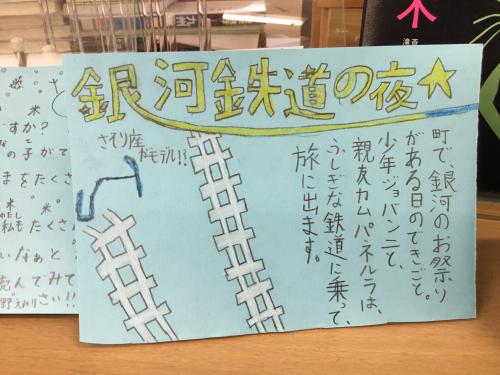 銀河鉄道の夜★
さそり座
がモデル!?
町で、銀河のお祭り
がある日のできごと。
少年ジョバンニと、
親友カムパネルラは、
ふしぎな鉄道に乗って、
旅に出ます。
米
すか?
の子がで
まをたくさ
米 米
私もたくさ
いなぁと
読んでみて
さい!!